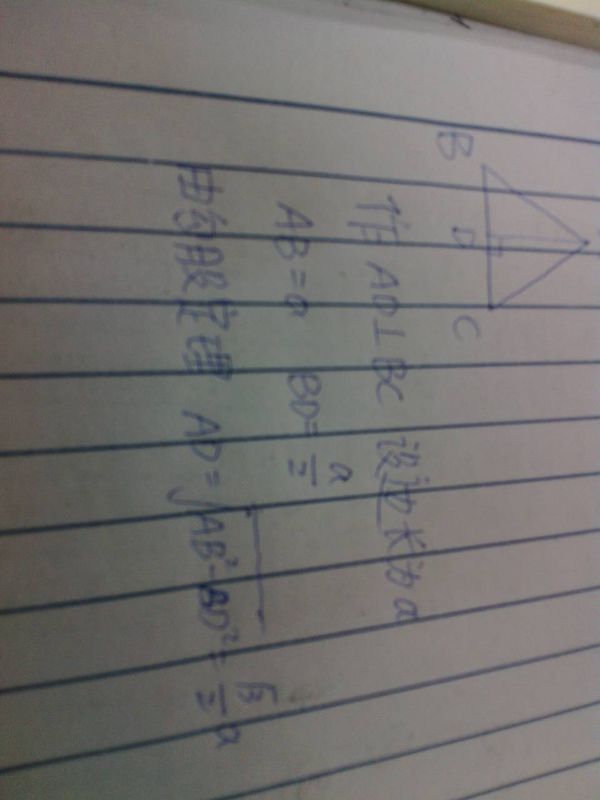 B D C
作AD⊥BC 设边长为a
AB=a BD=a/2
由勾股定理 AD=√(AB²-BD²)=√3/2 a